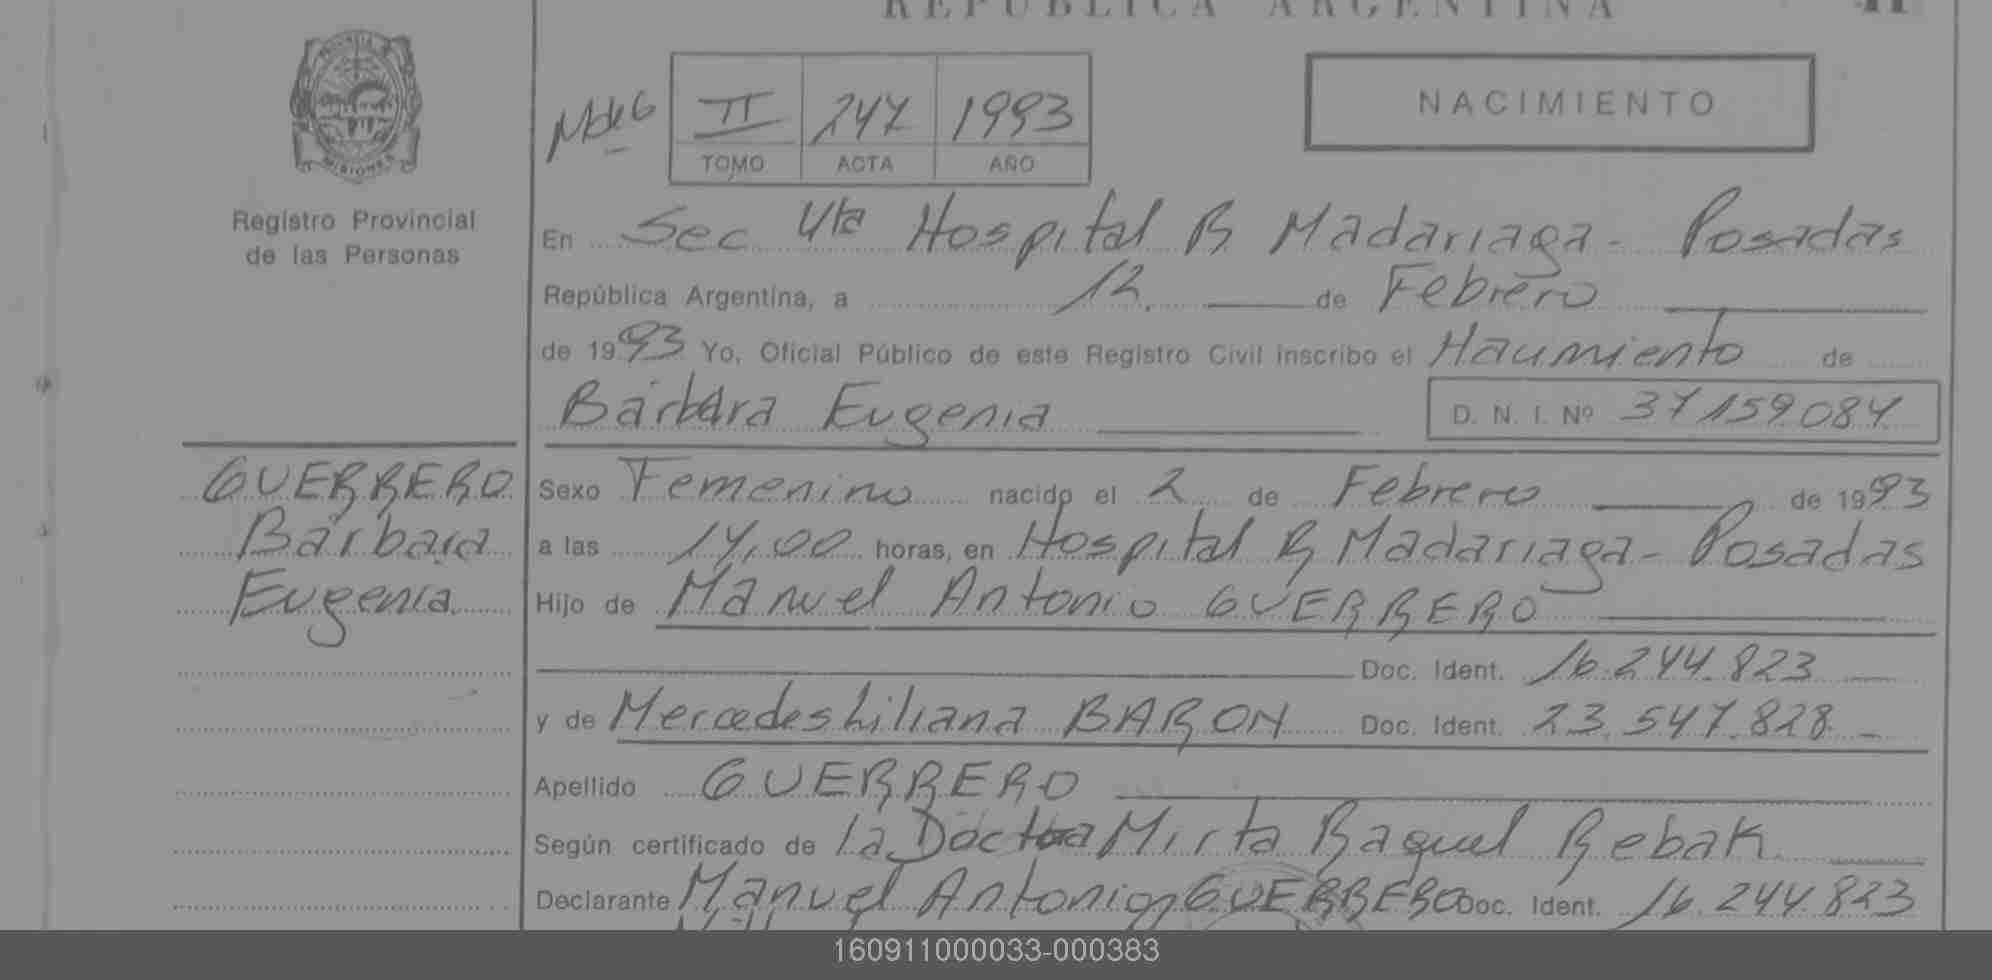 REPUBLICA ARGENTINA
PROVINCIA DE
MISIONES
Registro Provincial
de las Personas
II 247 1993
TOMO ACTA AÑO
NACIMIENTO
En Sec 4ta Hospital R Madariaga - Posadas
República Argentina, a 12. de Febrero
de 1993 Yo, Oficial Público de este Registro Civil inscribo el Nacimiento de
Bárbara Eugenia D. N. I. Nº 37159084
GUERRERO
Bárbara
Eugenia
Sexo Femenino nacido el 2 de Febrero de 1993
a las 14,00 horas, en Hospital R Madariaga - Posadas
Hijo de Manuel Antonio GUERRERO
Doc. Ident. 16.244.823
y de Mercedes Liliana BARON Doc. Ident. 23.547.828
Apellido GUERRERO
Según certificado de la Doctora Mirta Raquel Rebak
Declarante Manuel Antonio GUERRERO Doc. Ident. 16.244.823
160911000033-000383